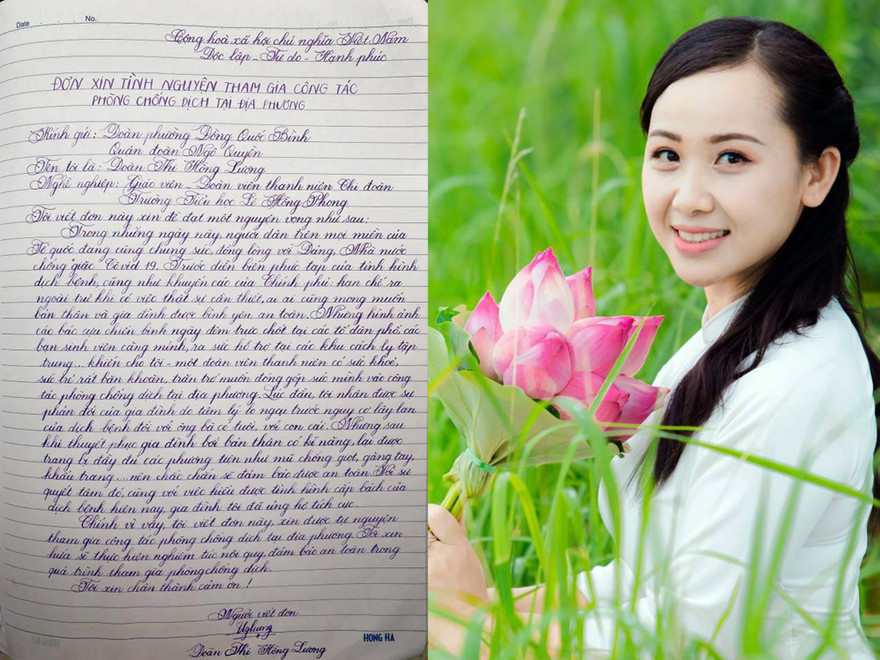 Date No.
Cộng hoà xã hội chủ nghĩa Việt Nam
Độc lập - Tự do - Hạnh phúc
ĐƠN XIN TÌNH NGUYỆN THAM GIA CÔNG TÁC
PHÒNG CHỐNG DỊCH TẠI ĐỊA PHƯƠNG
Kính gửi: Đoàn phường Đông Quốc Bình
Quận đoàn Ngô Quyền
Tên tôi là: Đoàn Thị Hồng Lương
Nghề nghiệp: Giáo viên - Đoàn viên thanh niên Chi đoàn
Trường Tiểu học Lê Hồng Phong
Tôi viết đơn này xin đề đạt một nguyện vọng như sau:
Trong những ngày này, người dân trên mọi miền của
Tổ quốc đang cùng chung sức, đồng lòng với Đảng, Nhà nước
chống "giặc" Covid 19. Trước diễn biến phức tạp của tình hình
dịch bệnh, cũng như khuyến cáo của Chính phủ: hạn chế ra
ngoài trừ khi có việc thật sự cần thiết, ai ai cũng mong muốn
bản thân và gia đình được bình yên, an toàn. Nhưng hình ảnh
các bác cựu chiến binh ngày đêm trực chốt tại các tổ dân phố, các
bạn sinh viên căng mình, ra sức hỗ trợ tại các khu cách ly tập
trung... khiến cho tôi - một đoàn viên thanh niên có sức khoẻ,
sức trẻ rất băn khoăn, trăn trở muốn đóng góp sức mình vào công
tác phòng chống dịch tại địa phương. Lúc đầu, tôi nhận được sự
phản đối của gia đình do tâm lý lo ngại trước nguy cơ lây lan
của dịch bệnh đối với ông bà có tuổi, với con cái. Nhưng sau
khi thuyết phục gia đình bởi bản thân có kĩ năng, lại được
trang bị đầy đủ các phương tiện như mũ chống giọt, găng tay,
khẩu trang... nên chắc chắn sẽ đảm bảo được an toàn. Tôi sự
quyết tâm đó, cùng với việc hiểu được tình hình cấp bách của
dịch bệnh hiện nay, gia đình tôi đã ủng hộ tích cực.
Chính vì vậy, tôi viết đơn này, xin được tự nguyện
tham gia công tác phòng chống dịch tại địa phương. Tôi xin
hứa sẽ thực hiện nghiêm túc nội quy, đảm bảo an toàn trong
quá trình tham gia phòng chống dịch.
Tôi xin chân thành cảm ơn!
Người viết đơn
HONG HA
Đoàn Thị Hồng Lương